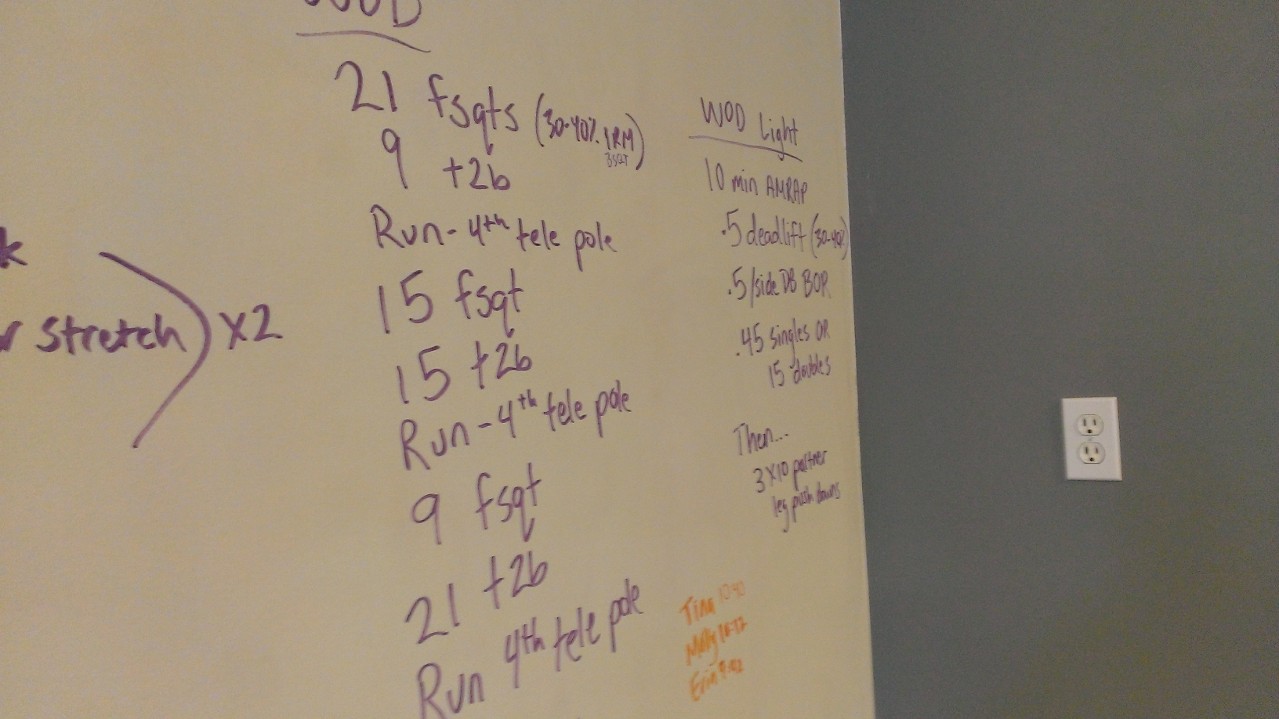 WOD
21 fsqts (30-40% 1RM)
9 t2b
Run - 4th tele pole
15 fsqt
15 t2b
Run - 4th tele pole
9 fsqt
21 t2b
Run 4th tele pole
stretch) x2
WOD Light
10 min AMRAP
.5 deadlift (30-40%)
.5/side DB BOR
.45 singles OR
15 doubles
Then...
3x10 partner
leg push downs
Tina 10:40
Molly
Erin